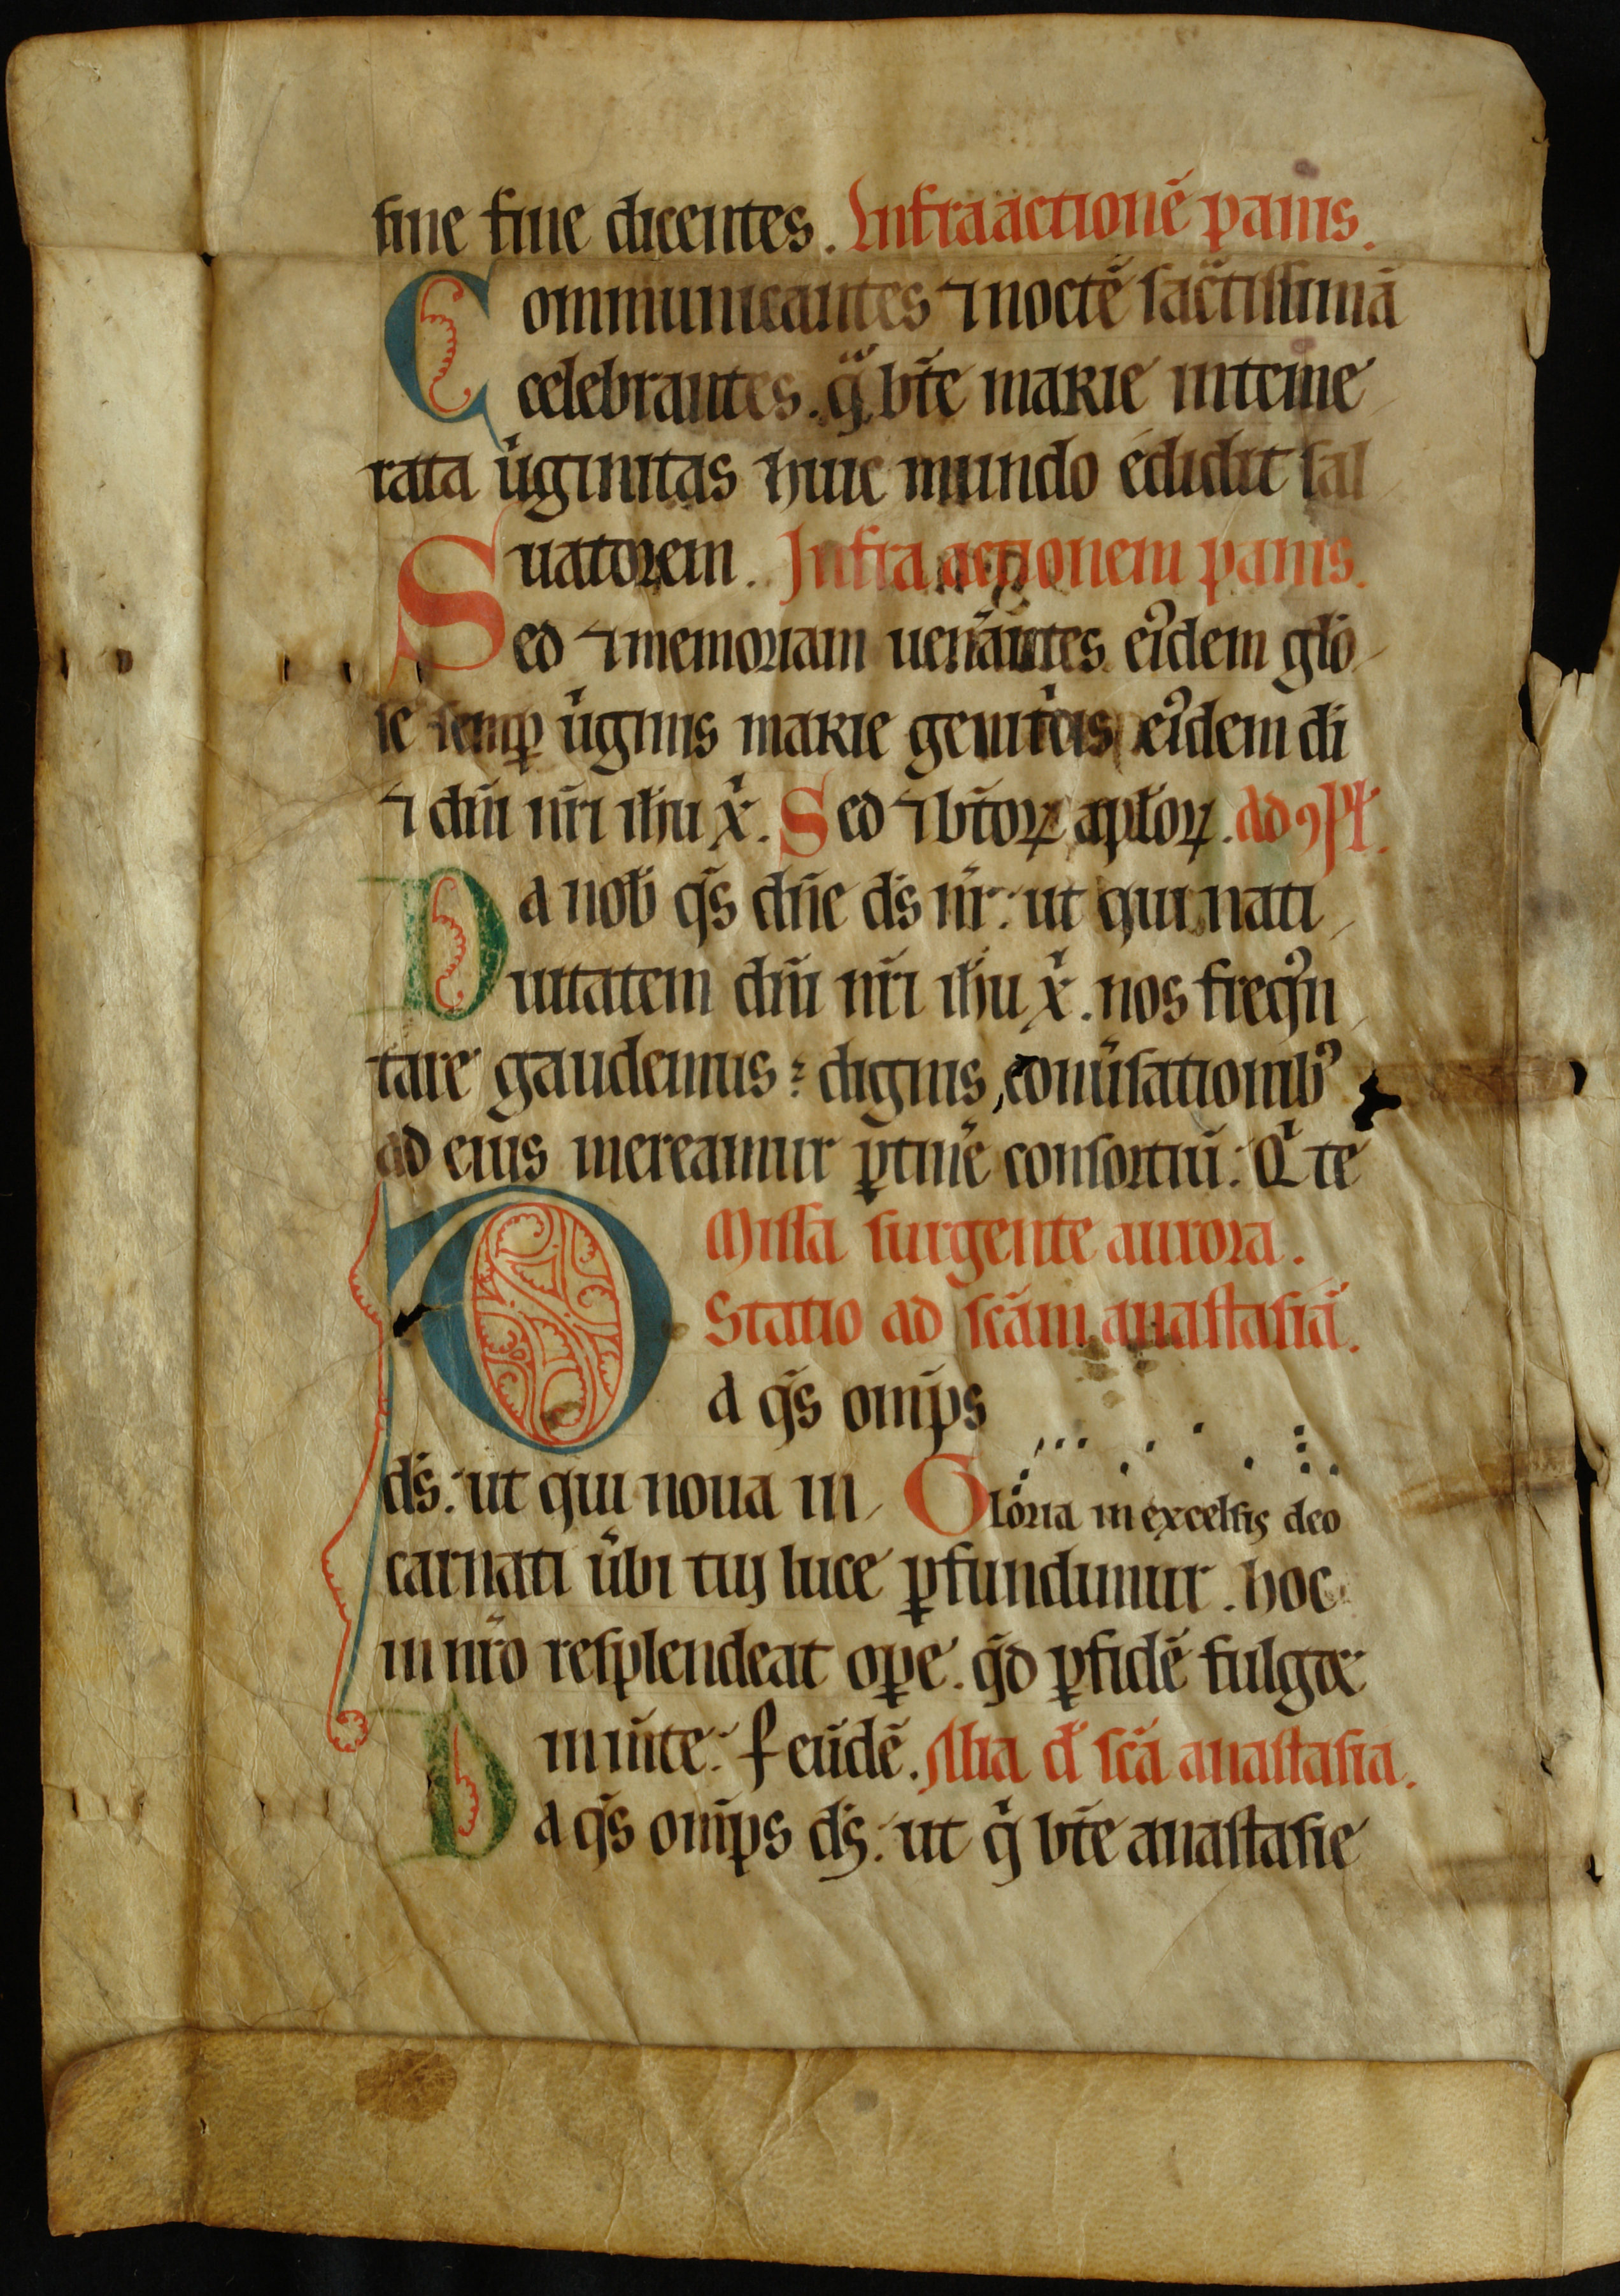 sine fine dicentes. Infra actionē panis.
Communicantes ⁊ noctē sac̄tissimā
celebrantes. q̄ bt̄e marie inteme
rata ůginitas huic mundo edidit sal
uatorem. Infra actionem panis.
Sed ⁊ memoriam uenāntes eiꝰdem glo
se semꝑ ůginis marie genitͥcis eiꝰdem di
⁊ dn̄i nr̄i ih̄u xͥ. Sed ⁊ bt̄oꝝ apl̄oꝝ. ad ꝯpl̄.
Da nob̄ qs̄ dn̄e ds̄ nr̄: ut qui nati
uitatem dn̄i nr̄i ih̄u xͥ. nos freqꝰn
tare gaudemus: dignis conūsationibꝰ
ad eius mereamur ꝑtin̄e consortiū: Qͥ te
Missa surgente aurora.
Statio ad scām anastasiā.
Da qs̄ omp̄s
ds̄: ut qui noua in Gloria in excelsis deo
carnati ūbi tui luce ꝑfundimur. hoc
in nr̄o resplendeat oꝑe. qd̄ ꝑ fidē fulget
in m̄te. ꝑ eūdē. Alia d̄ sc̄a anastasia.
Da qs̄ omp̄s ds̄: ut qͥ bt̄e anastasie